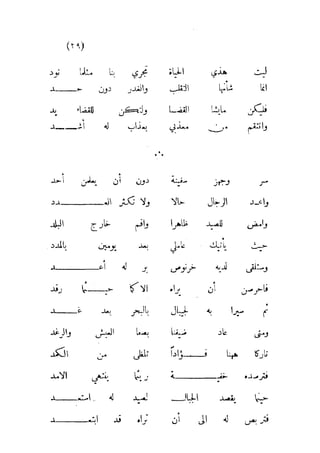 (٢٩)
ليت هذي الحياة تجري بنا مثلما نود
انما شأنها التقلب والغدر دون حــــد
فليكن مايشا القضا ولتكن للقضاء يد
وانتقم من معذبي بعذاب له أشــــد
٠٠٠
سر وجهز سفينة دون أن يعلمن أحد
واعدد الرجال حالا ولا تكثر العــــدد
وامض للصيد ظاهرا واقم خارج البلد
حيث يأتيك عاملي بعد يومين بالمدد
وستلقى لديه خرنوص بر له أعــــد
فاحرصن أن يراه الا كما حيــــنما رقد
ثم سيرا به لجبال بالبحر بعد غــــد
ومتى عاد ضيفنا بصفا العيش والرغد
تاركا ههنا فــــؤاداً تلظى من الكمد
فترصده خفيــــة ريثما ينتهي الامد
حينما يقصد الجبالــــ لصيد له استعــــد
فتربص له الى أن تراه قد ابتعــــد